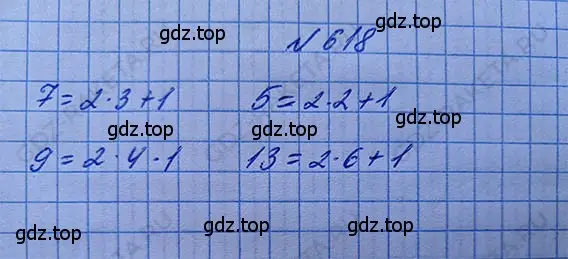 gdz.top gdz.top
№ 618
7 = 2 · 3 + 1 5 = 2 · 2 + 1
gdz.top gdz.top gdz.top
9 = 2 · 4 · 1 13 = 2 · 6 + 1
gdz.top gdz.top gdz.top